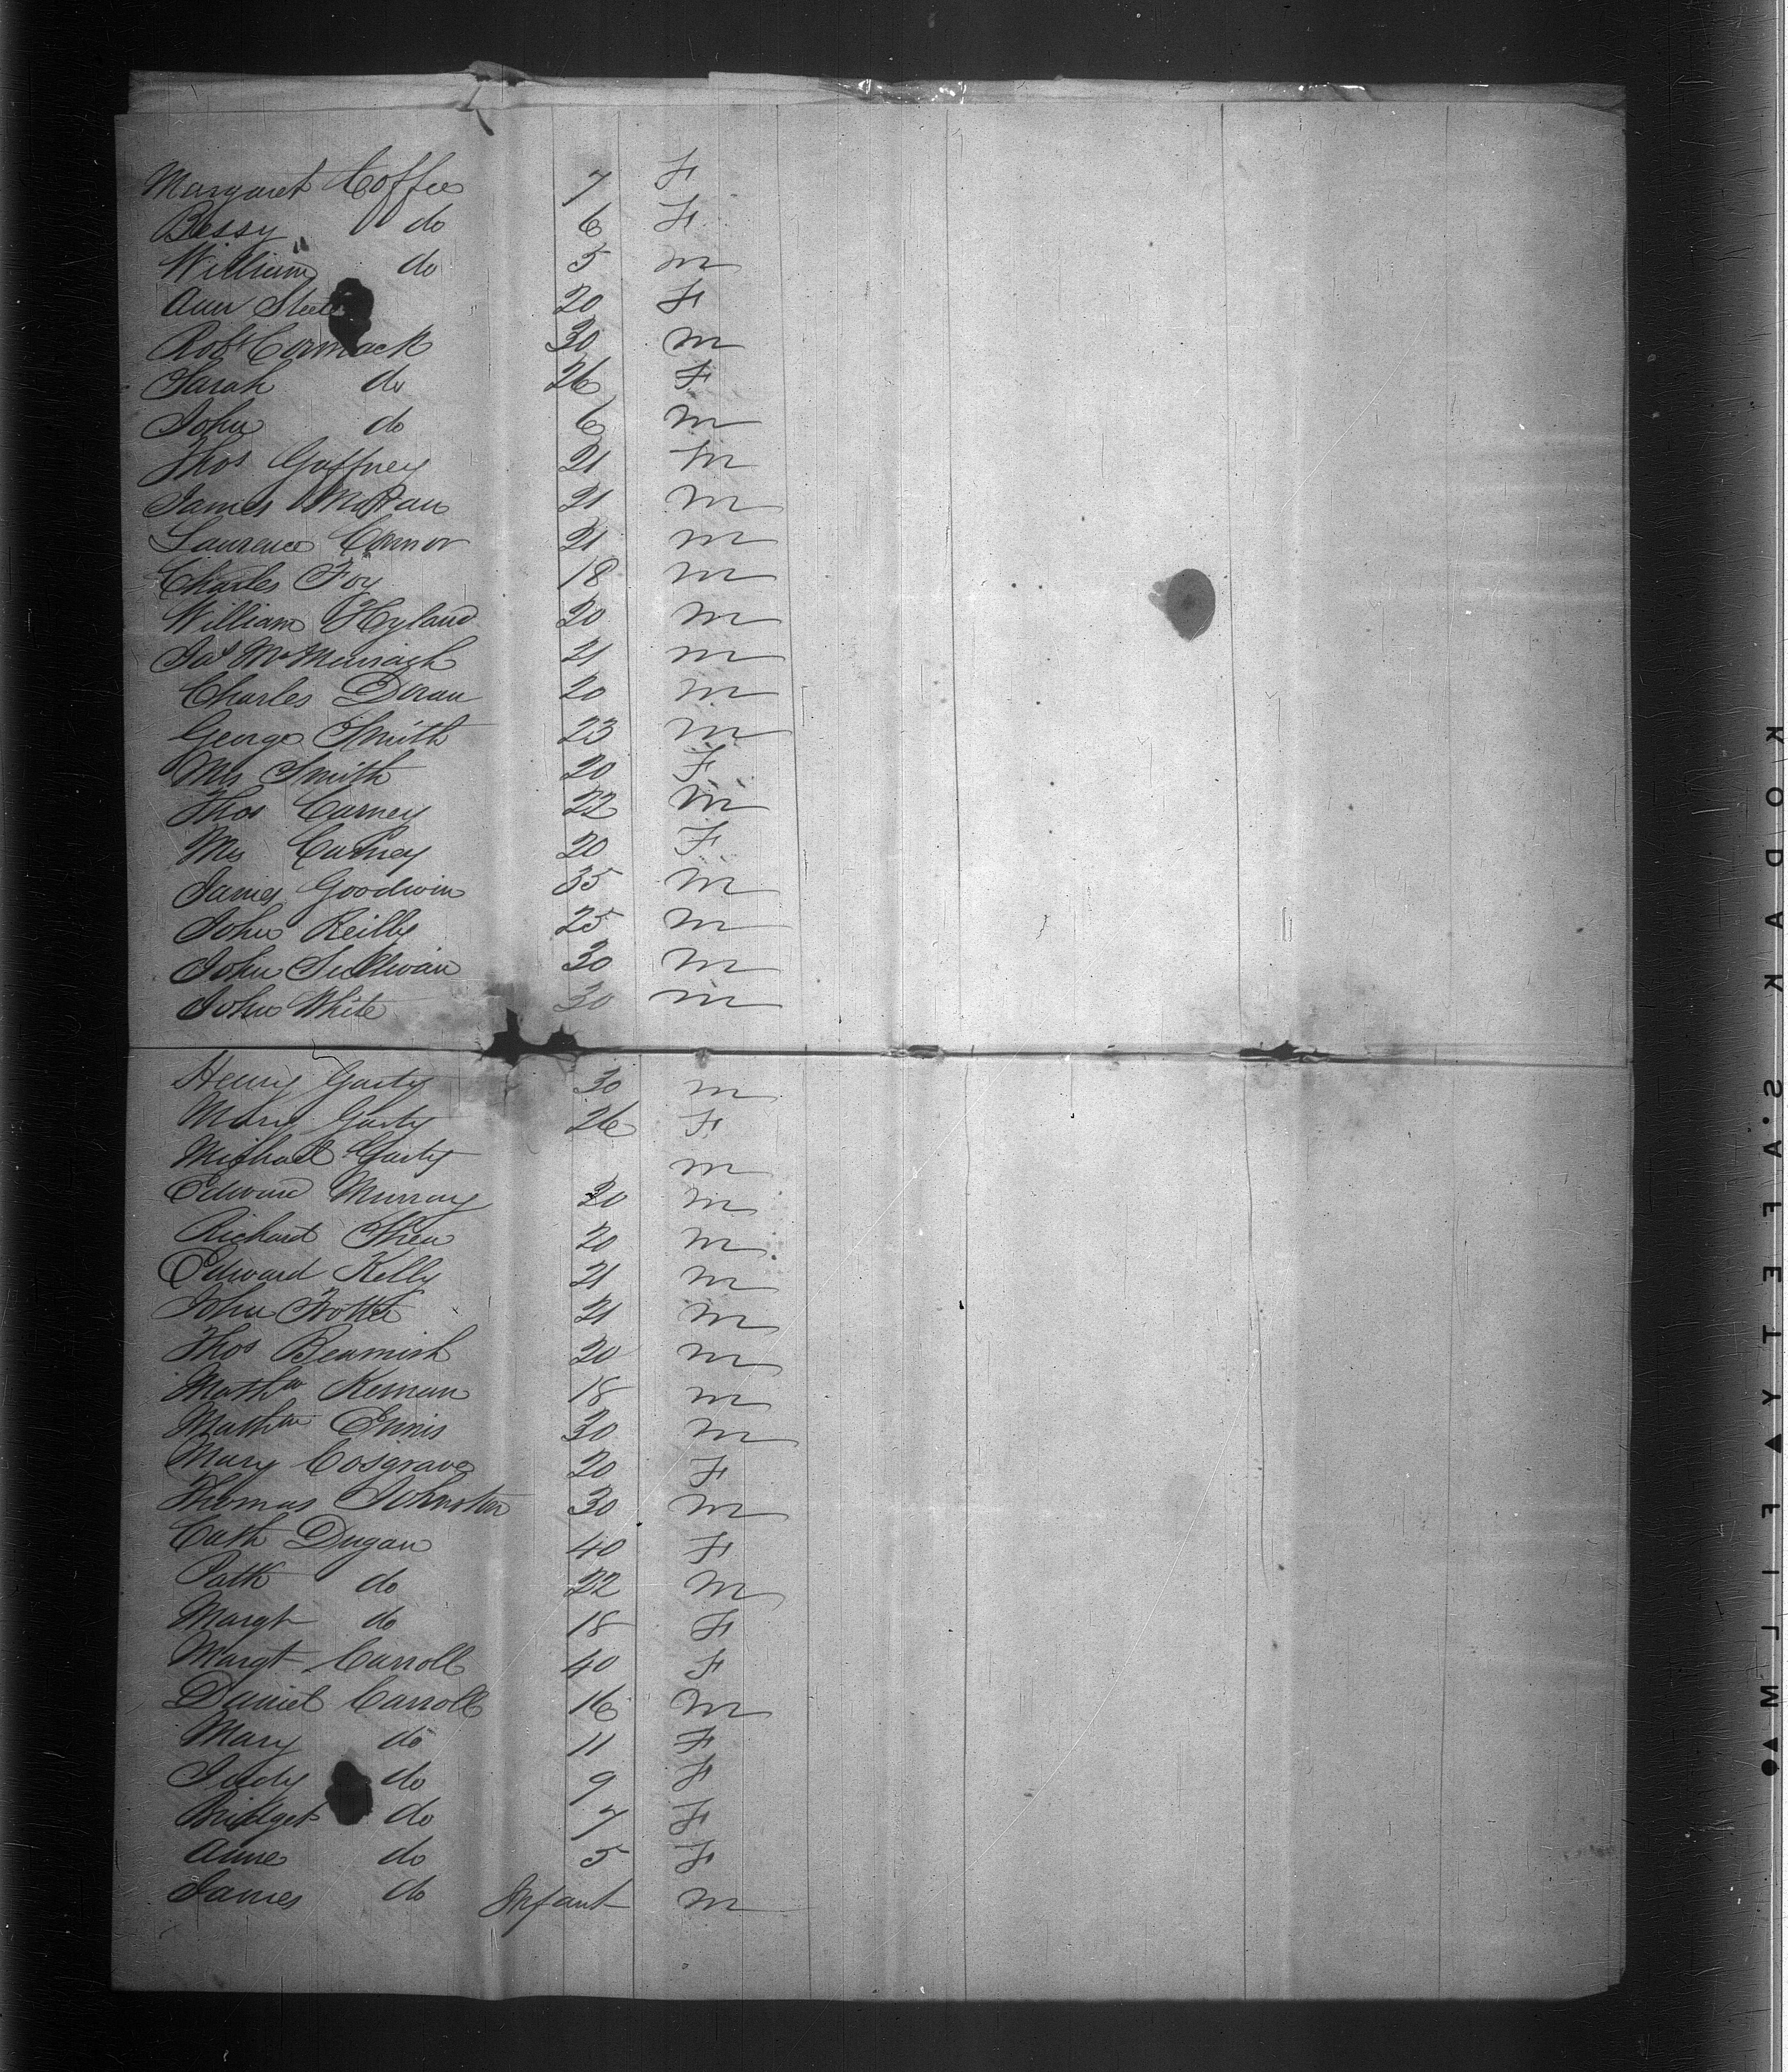 Margaret Coffee 7 F
Bessy do 6 F
William do 5 m
Ann 20 F
Robt Cormack 30 m
Sarah do 26 F
John do 6 m
Thos Gaffney 21 m
James 21 m
Laurence Connor 21 m
Charles Foy 18 m
William Hyland 20 m
Jas McMurragh 21 m
Charles Doran 20 m
George Smith 23 m
Mrs Smith 20 F
Thos Carney 22 m
Mrs Carney 20 F
James Goodwin 35 m
John Reilly 25 m
John Sullivan 30 m
John White 30 m
Henry Garty 30 m
Mary Garty 26 F
Michael Garty m
Edward Murray 20 m
Richard Shea 20 m
Edward Kelly 21 m
John 21 m
Thos Beamish 20 m
Mathw Kernan 18 m
Mathw Ennis 30 m
Mary Cosgrave 20 F
Thomas Johnston 30 m
Cath Dugan 40 F
Patk do 22 m
Margt do 18 F
Margt Carroll 40 F
Daniel Carroll 16 m
Mary do 11 F
Judy do 9 F
Bridget do 7 F
Anne do 5 F
James do Infant m
KODAK S.A FETY ▲ FILM ▲●